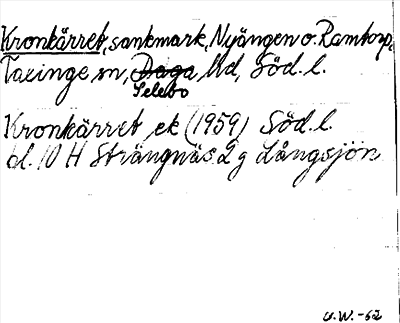 Kronkärret, sankmark, Nyängen o. Ramtorp,
Taxinge sn, Daga hd, Söd. l.
Selebo
Kronkärret ek (1959) Söd. l.
bl. 10 H Strängnäs 2 g Långsjön
U.W. -62